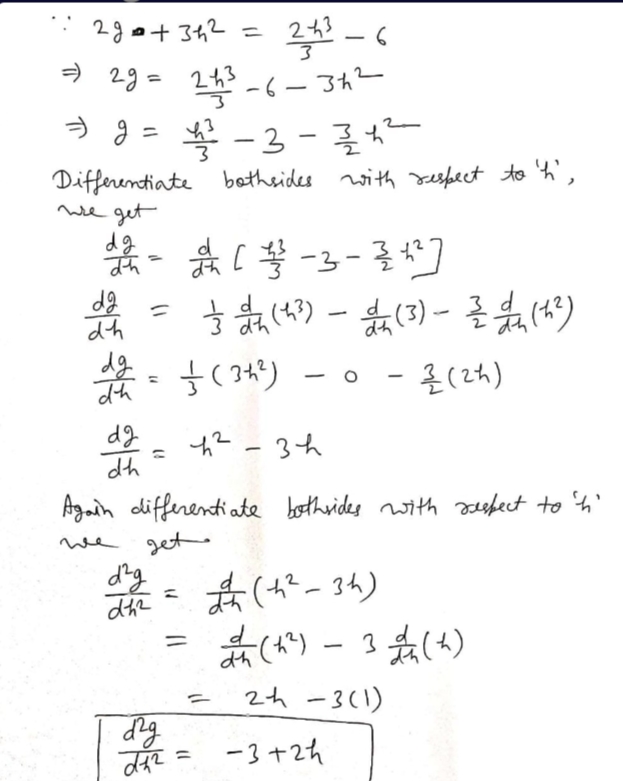 ∵ 2g + 3h² = 2h³/3 − 6
⇒ 2g = 2h³/3 − 6 − 3h²
⇒ g = h³/3 − 3 − 3/2 h²
Differentiate bothsides with respect to 'h',
we get
dg/dh = d/dh [ h³/3 − 3 − 3/2 h² ]
dg/dh = 1/3 d/dh (h³) − d/dh (3) − 3/2 d/dh (h²)
dg/dh = 1/3 (3h²) − 0 − 3/2 (2h)
dg/dh = h² − 3h
Again differentiate bothsides with respect to 'h'
we get
d²g/dh² = d/dh (h² − 3h)
= d/dh (h²) − 3 d/dh (h)
= 2h − 3(1)
d²g/dh² = −3 + 2h